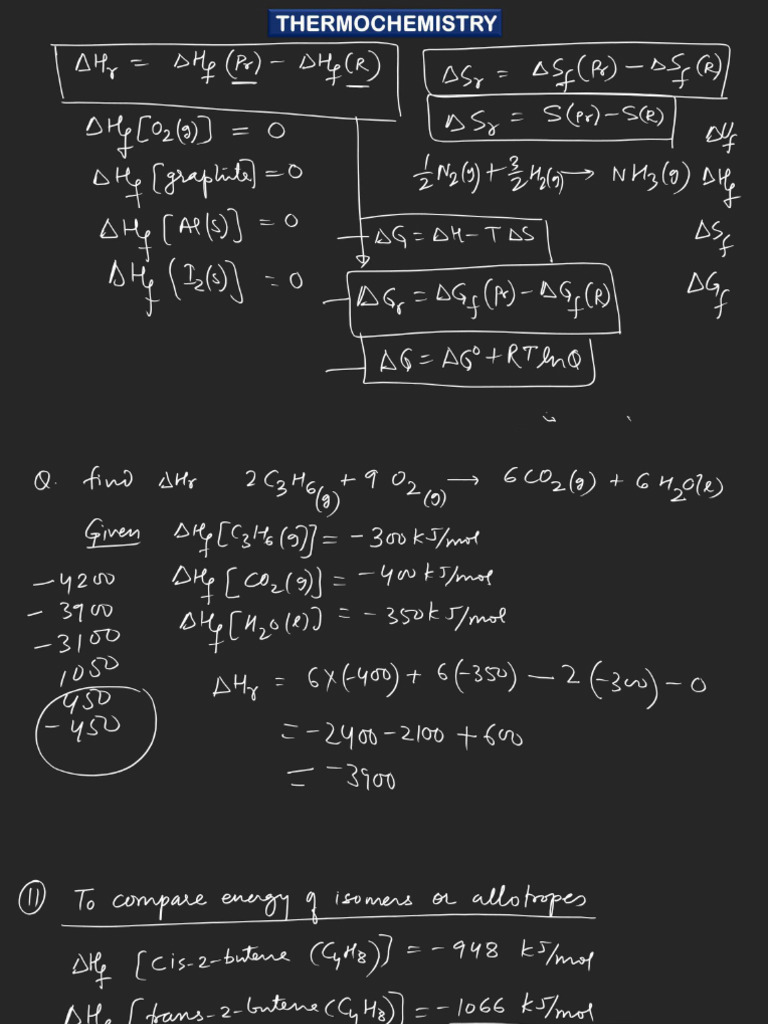 THERMOCHEMISTRY
ΔHr = ΔHf (Pr) - ΔHf (R)
ΔSr = ΔSf (Pr) - ΔSf (R)
ΔSr = S(Pr) - S(R)
ΔHf [O2(g)] = 0
ΔHf [graphite] = 0
ΔHf [Al(s)] = 0
ΔHf (I2(s)] = 0
1/2 N2(g) + 3/2 H2(g) → NH3(g) ΔHf
ΔSf
ΔGf
ΔG = ΔH - TΔS
ΔGr = ΔGf (Pr) - ΔGf (R)
ΔG = ΔG° + RT ln Q
Q. find ΔHr 2C3H6(g) + 9O2(g) → 6CO2(g) + 6H2O(l)
Given ΔHf [C3H6(g)] = -300 kJ/mol
ΔHf [CO2(g)] = -400 kJ/mol
ΔHf [H2O(l)] = -350 kJ/mol
-4200
-3900
-3100
1050
450
-450
ΔHr = 6×(-400) + 6(-350) - 2(-300) - 0
= -2400 - 2100 + 600
= -3900
(11) To compare energy of isomers or allotropes
ΔHf [cis-2-butene (C4H8)] = -948 kJ/mol
ΔHf [trans-2-butene (C4H8)] = -1066 kJ/mol